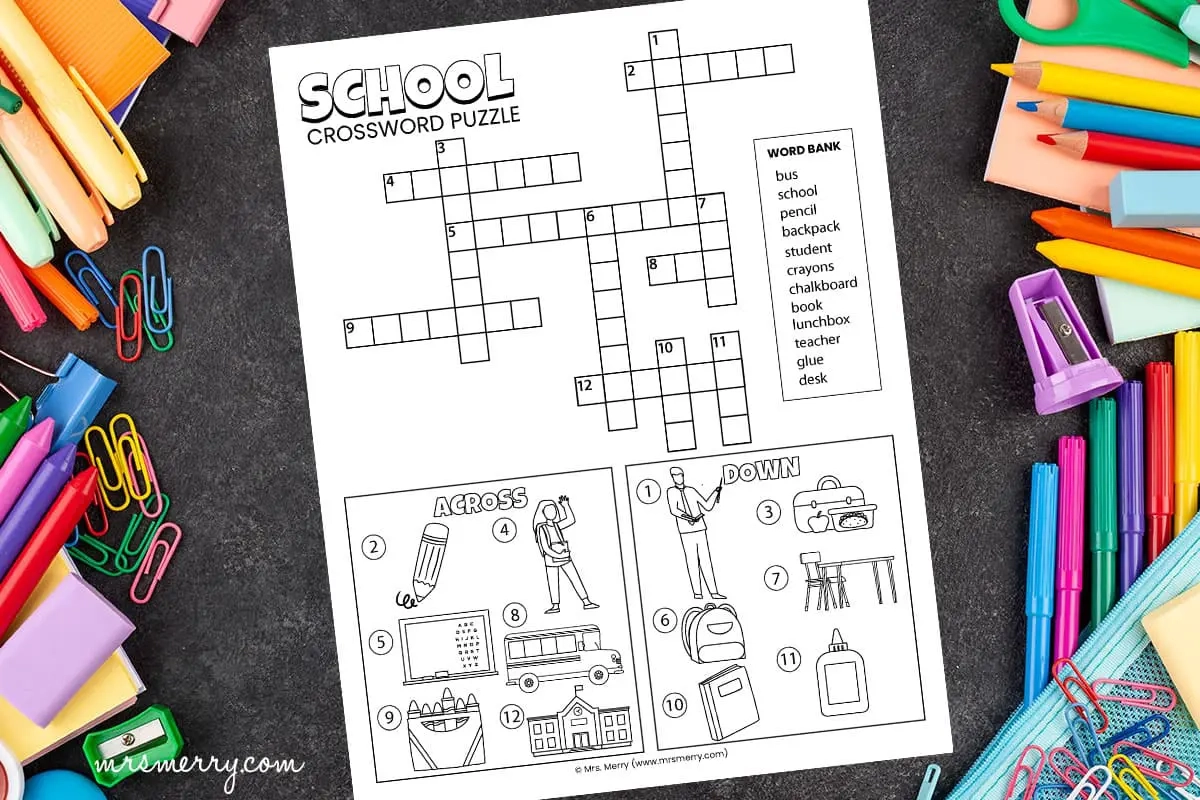 SCHOOL
CROSSWORD PUZZLE
1
2
3
4
5
6
7
8
9
10
11
12
WORD BANK
bus
school
pencil
backpack
student
crayons
chalkboard
book
lunchbox
teacher
glue
desk
ACROSS
2
4
5
A B C
8
9
12
DOWN
1
3
7
6
11
10
© Mrs. Merry (www.mrsmerry.com)
mrsmerry.com